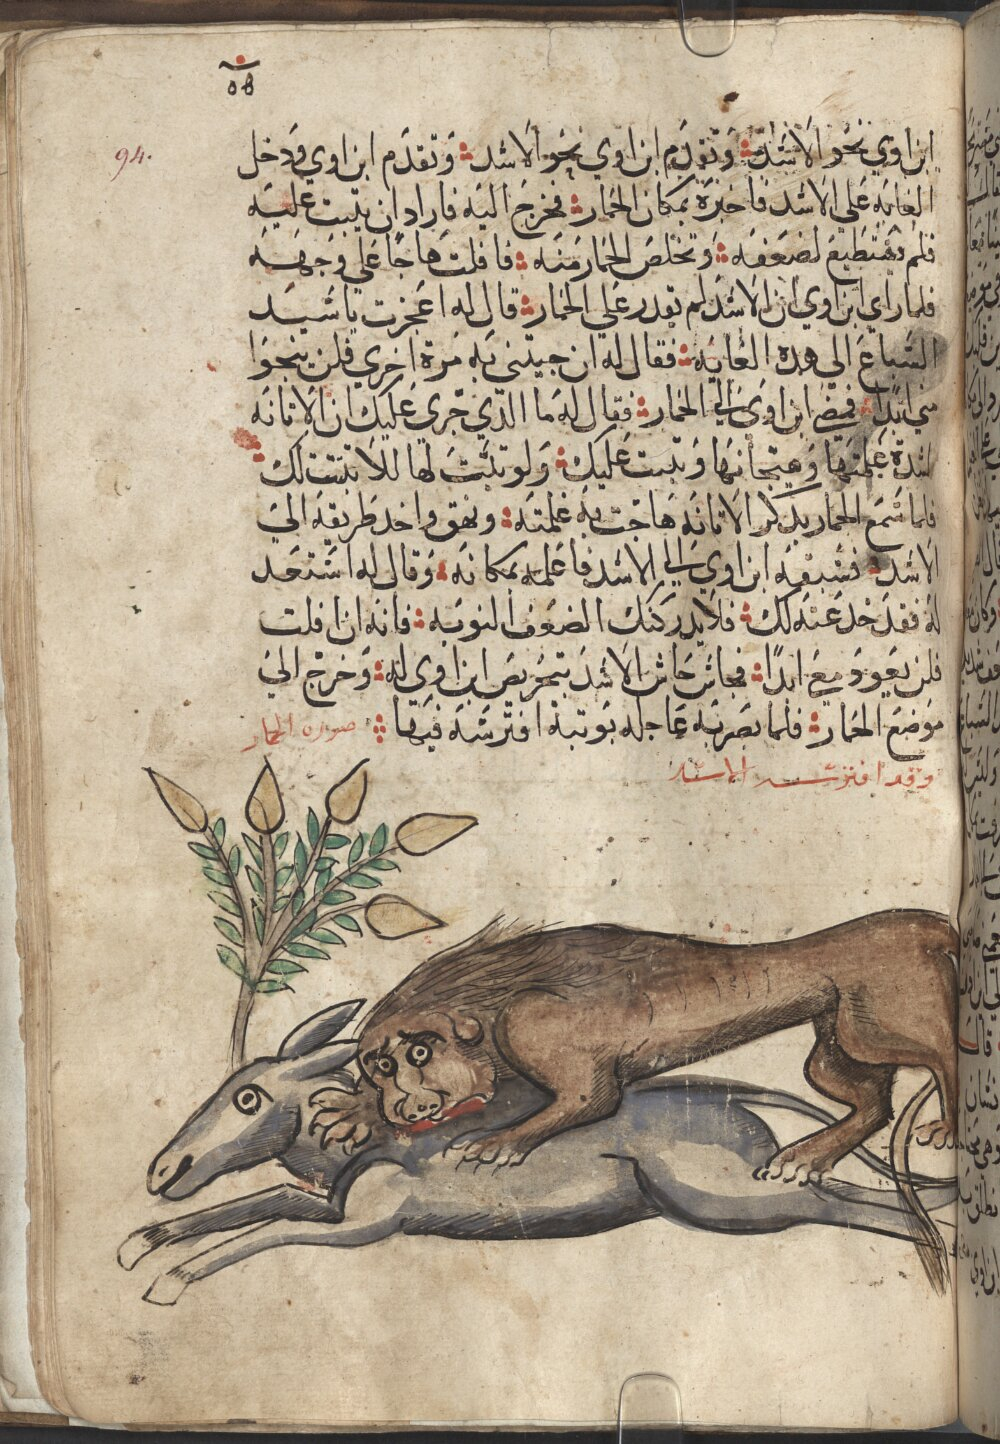 ٥٨
94.
ابن اوي نحو الاسَد وَتقدم ابن اوي نحو الاسد وَتقدم ابن اوي ودخل
الغابه عَلي الاسَد فاخبرَه بمكان الحمار فخرج اليَه فاراد ان يثبت عليَه
فلم يستطيع لضعفه وَتخلص الحمار منَه فافلت هَاجًا عَلي وجهَه
فلما راي ابن اوي ان الاسَد لم يقدر عَلي الحمار قال له اعَجزت يا سَيد
السَباع الي هده الغايه فقال له ان جيتني بَه مَرة اخري فلن ينجوَا
مني ابدًا فمضي ابن اوي الي الحمار فقال لَه ما الدي جَري عَليك ان الاتانَه
لشدة غلمتها وَهيجانهَا وَثبت عَليك وَلو ثبَتَ لهَا للاتثبتت لك
فلما سَمع الحمار بدكر الاتانَه هَاجَت بَه غلمته وَنهق واخد طريقَه الي
الاسَد فسَبقَه ابن اوي الي الاسد فاعَلمه بمكانه وَقال له استعَد
لَه فقد خدعته لك فلا يدركنك الضعف النوبَه فانه ان افلت
فلن يعَود معَي ابدًا فجاش جَاش الاسَد بتحريض ابن اوي له وَخرج الي
موَضع الحمار فلما بَصر بَه عَاجله بوَثبة افترسَه فيهَا صوره الحمار
وقد افترسه الاسد